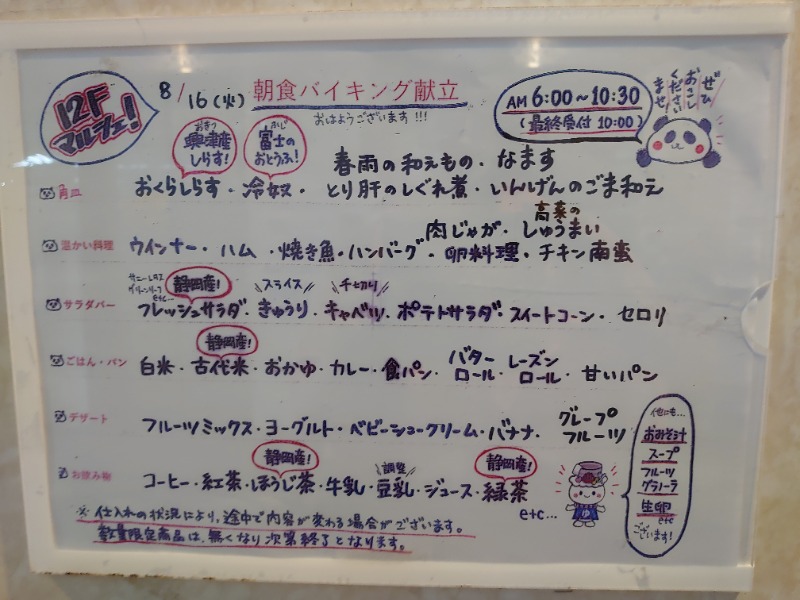 12F
マルシェ!
8/16(火) 朝食バイキング献立
おはようございます!!!
AM 6:00~10:30
(最終受付 10:00)
ぜひ
おこし
ください
ませ
おきつ
興津産
しらす!
ふじ
富士の
おとうふ!
春雨の和えもの・なます
角皿
おくらしらす・冷奴・とり肝のしぐれ煮・いんげんのごま和え
高菜の
肉じゃが・しゅうまい
温かい料理
ウインナー・ハム・焼き魚・ハンバーグ・卵料理・チキン南蛮
サニーレタス
グリーンリーフ
etc...
静岡産!
スライス
千切り
サラダバー
フレッシュサラダ・きゅうり・キャベツ・ポテトサラダ・スイートコーン・セロリ
静岡産!
ごはん・パン
白米・古代米・おかゆ・カレー・食パン・バターロール・レーズンロール・甘いパン
デザート
フルーツミックス・ヨーグルト・ベビーシュークリーム・バナナ・グレープフルーツ
静岡産!
調整
静岡産!
お飲み物
コーヒー・紅茶・ほうじ茶・牛乳・豆乳・ジュース・緑茶
etc...
他にも...
おみそ汁
スープ
フルーツ
グラノーラ
生卵
etc
ございます!
※仕入れの状況により、途中で内容が変わる場合がございます。
数量限定商品は、無くなり次第終了となります。